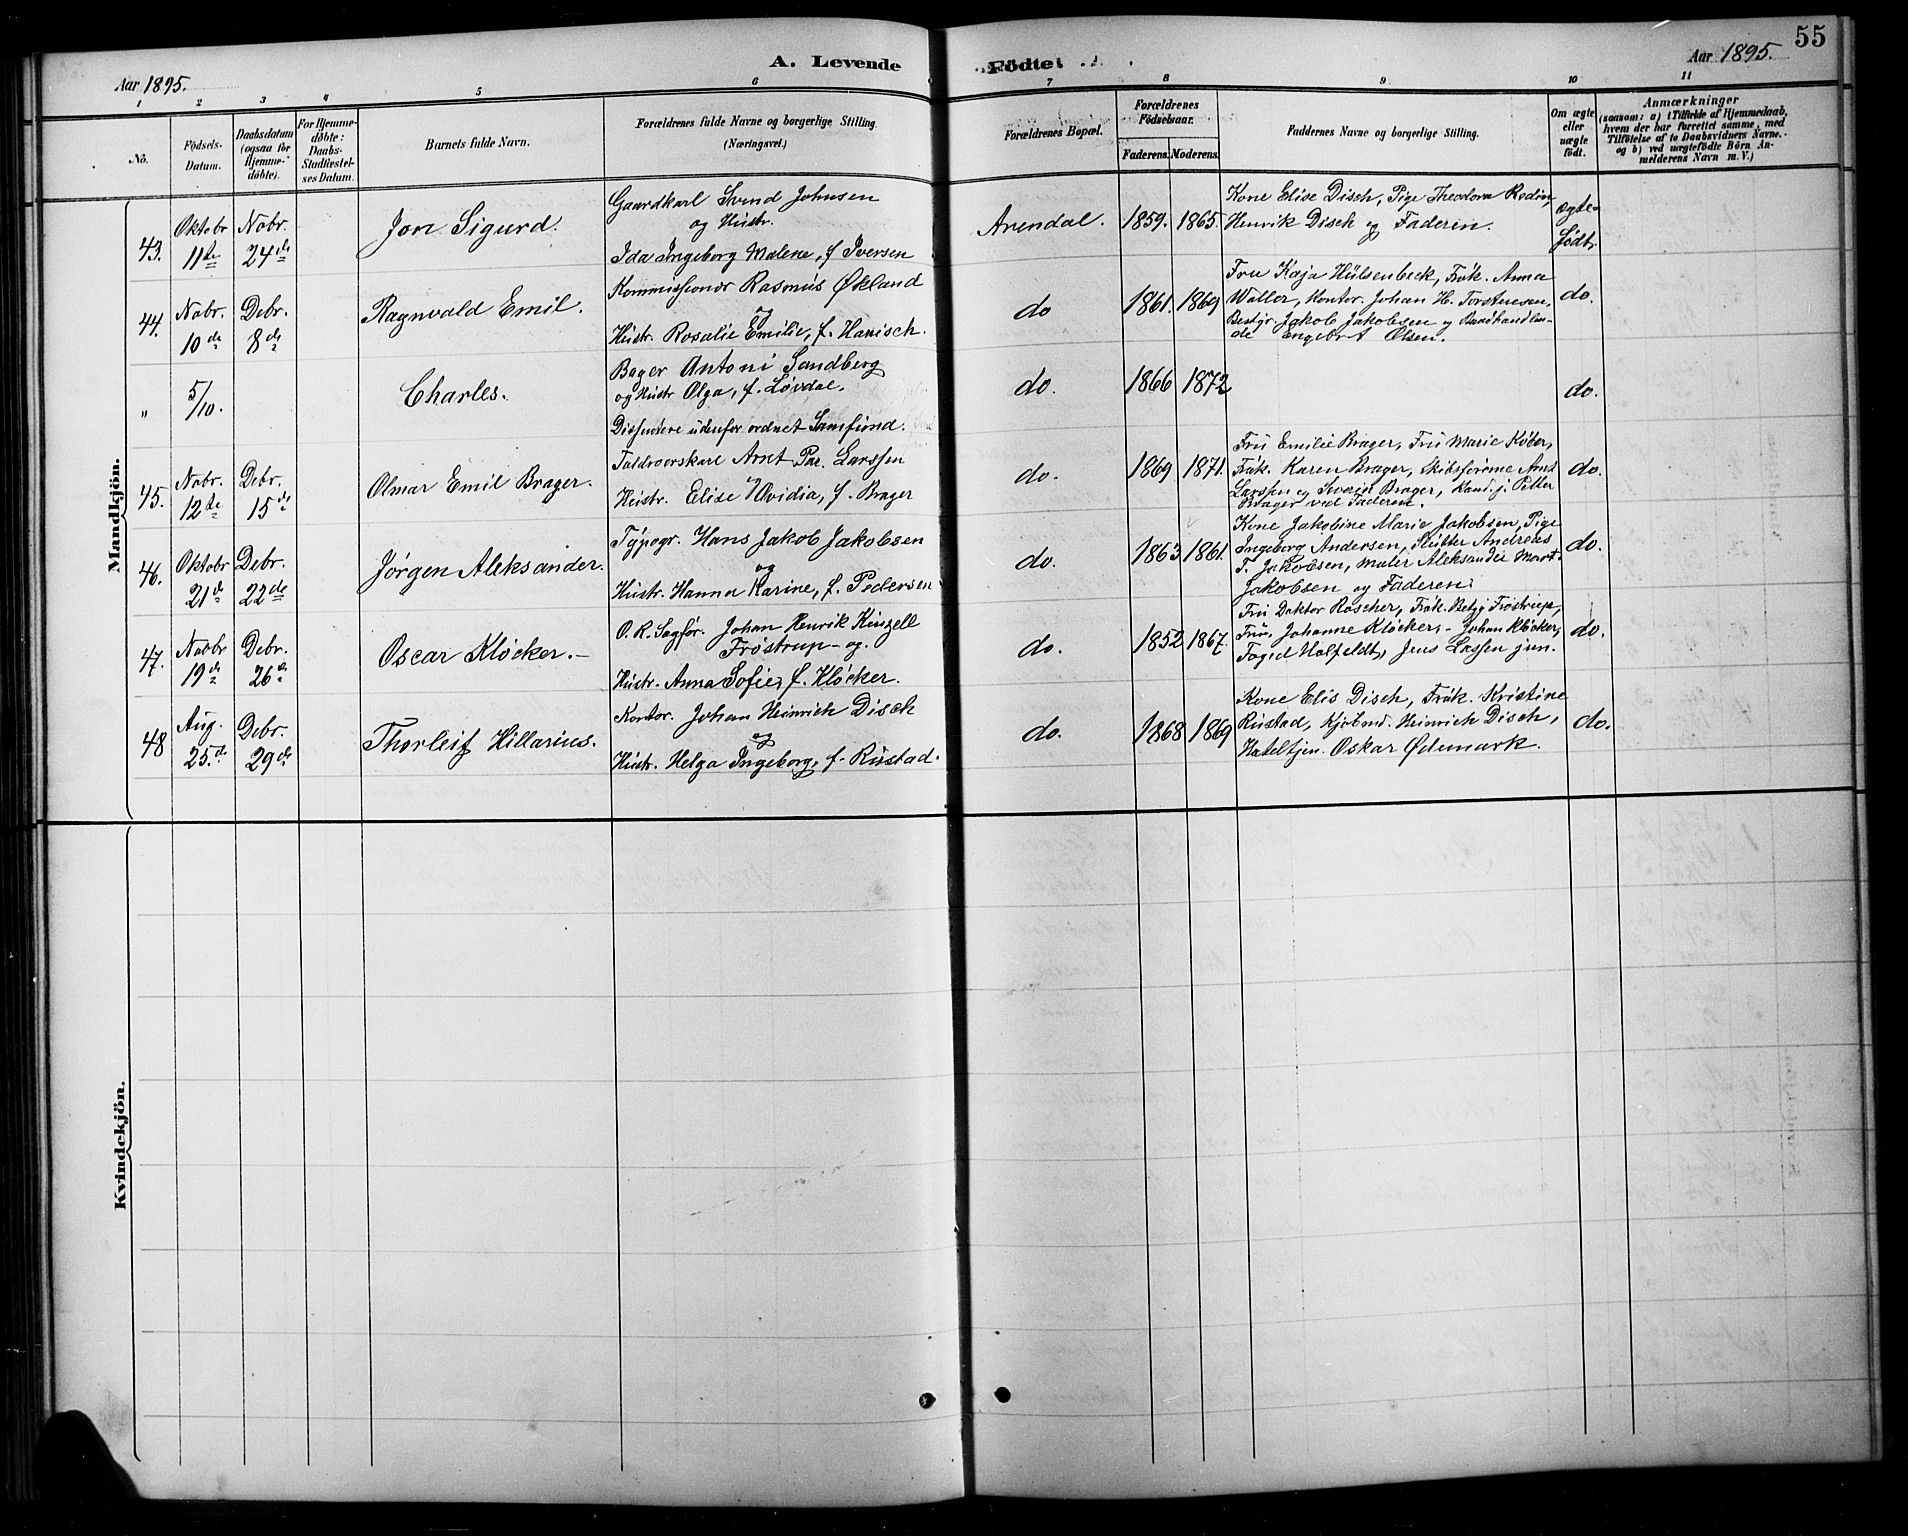 55
Aar 1895.
A. Levende
Födte
Aar 1895.
1 2 3 4 5 6 7 8 9 10 11
No.
Födsels-
Datum.
Daabsdatum
(ogsaa for
Hjemme-
döbte).
For Hjemme-
döbte:
Daabs-
Stadfæstel-
ses Datum.
Barnets fulde Navn.
Forældrenes fulde Navne og borgerlige Stilling.
(Næringsvei.)
Forældrenes Bopæl.
Forældrenes
Födselsaar.
Faderens.
Moderens.
Faddernes Navne og borgerlige Stilling.
Om ægte
eller
uægte
födt.
Anmærkninger
(saasom: a) i Tilfælde af Hjemmedaab,
hvem der har forrettet samme, med
Tilföielse af to Daabsvidners Navne,
og b) ved uægtefödte Börn An-
melderens Navn m. V.)
Mandkjön.
43.
Oktobr
11te
Nobr.
24de
Jon Sigurd.
Gaardkarl Svend Johnsen
og Hustr.
Ida Ingeborg Malene, f. Iversen
Arendal.
1859.
1865.
Kone Elise Disch, Pige Theodora Redin,
Henrik Disch og Faderen.
ægte-
födt.
44.
Nobr.
10de
Debr.
8de
Ragnvald Emil.
Kommissionær Rasmus Økland
og
Hustr. Rosalie Emilie, f. Hanisch.
do
1861.
1869
Fru Kaja Hülsenbeck, Frøk. Anna
Waller, Kontor. Johan H. Torstensen,
Bestyr. Jakob Jakobsen og
Engebrt Olsen.
do.
"
5/10.
Charles.
Bager Antoni Sandberg
og Hustr Olga, f. Løvdal.
Dissentere udenfor ordnet Samfund.
do.
1866
1872
do.
45.
Nobr.
12te
Debr.
15de
Olmar Emil Brager.
Toldroerskarl Arnt Par. Larssen
Hustr. Elise Ovidia, f. Brager
do.
1869
1871.
Fru Emilie Brager, Fru Marie Køber,
Frøk. Karen Brager, Skibsførerne Arnt
Larssen og Sverin Brager, Kand. j. Petter
Brager ved Faderen.
do.
46.
Oktobr
21de
Debr.
22de
Jørgen Aleksander.
Typogr. Hans Jakob Jakobsen
og
Hustr. Hanna Karine, f. Pedersen
do.
1863
1861.
Kone Jakobine Marie Jakobsen, Pige
Ingeborg Andersen, Slutter Andreas
T. Jakobsen, Maler Aleksander Mart.
Jakobsen og Faderen.
do.
47.
Nobr
19de
Debr.
26de
Oscar Kløcker.
O. R. Sagfør. Johan Henrik Kinzell
Frøstrup og.
Hustr. Anna Sofie, f. Kløcker.
do.
1852
1867.
Fru Doktor Roscher, Frøk. Betzy Frøstrup,
Frøk. Johanne Kløcker, Johan Kløcker,
Foged Holfeldt, Jens Lassen jun.
do.
48
Aug.
25de
Debr.
29de
Thorleif Hillarius.
Kontor. Johan Heinrich Disch
og
Hustr. Helga Ingeborg, f. Rustad.
do.
1868
1869
Kone Elis Disch, Frøk. Kristine
Rustad, Kjøbmd. Heinrich Disch,
Hotelejer Oskar Ødemark.
do.
Kvindekjön.